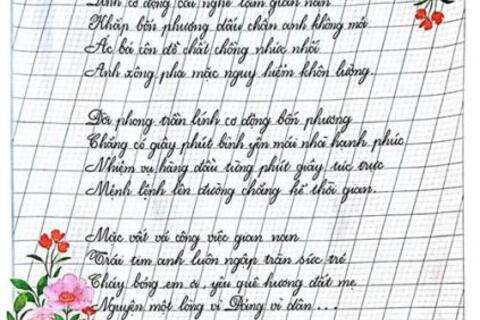 Lính cơ động cái nghề lắm gian nan
Khắp bốn phương dấu chân anh không mỏi
Ác bá côn đồ chất chồng nhức nhối
Anh xông pha mặc nguy hiểm khôn lường.
Đời phong trần lính cơ động bốn phương
Chẳng có giây phút bình yên mái nhà hạnh phúc
Nhiệm vụ hàng đầu từng phút giây túc trực
Mệnh lệnh lên đường chẳng kể thời gian.
Mặc vất vả công việc gian nan
Trái tim anh luôn ngập tràn sức trẻ
Cháy bỏng em ơi, yêu quê hương đất mẹ
Nguyện một lòng vì Đảng vì dân...